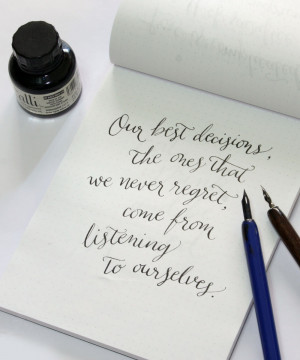 olli
Our best decisions,
the ones that
we never regret,
come from
listening
to ourselves.